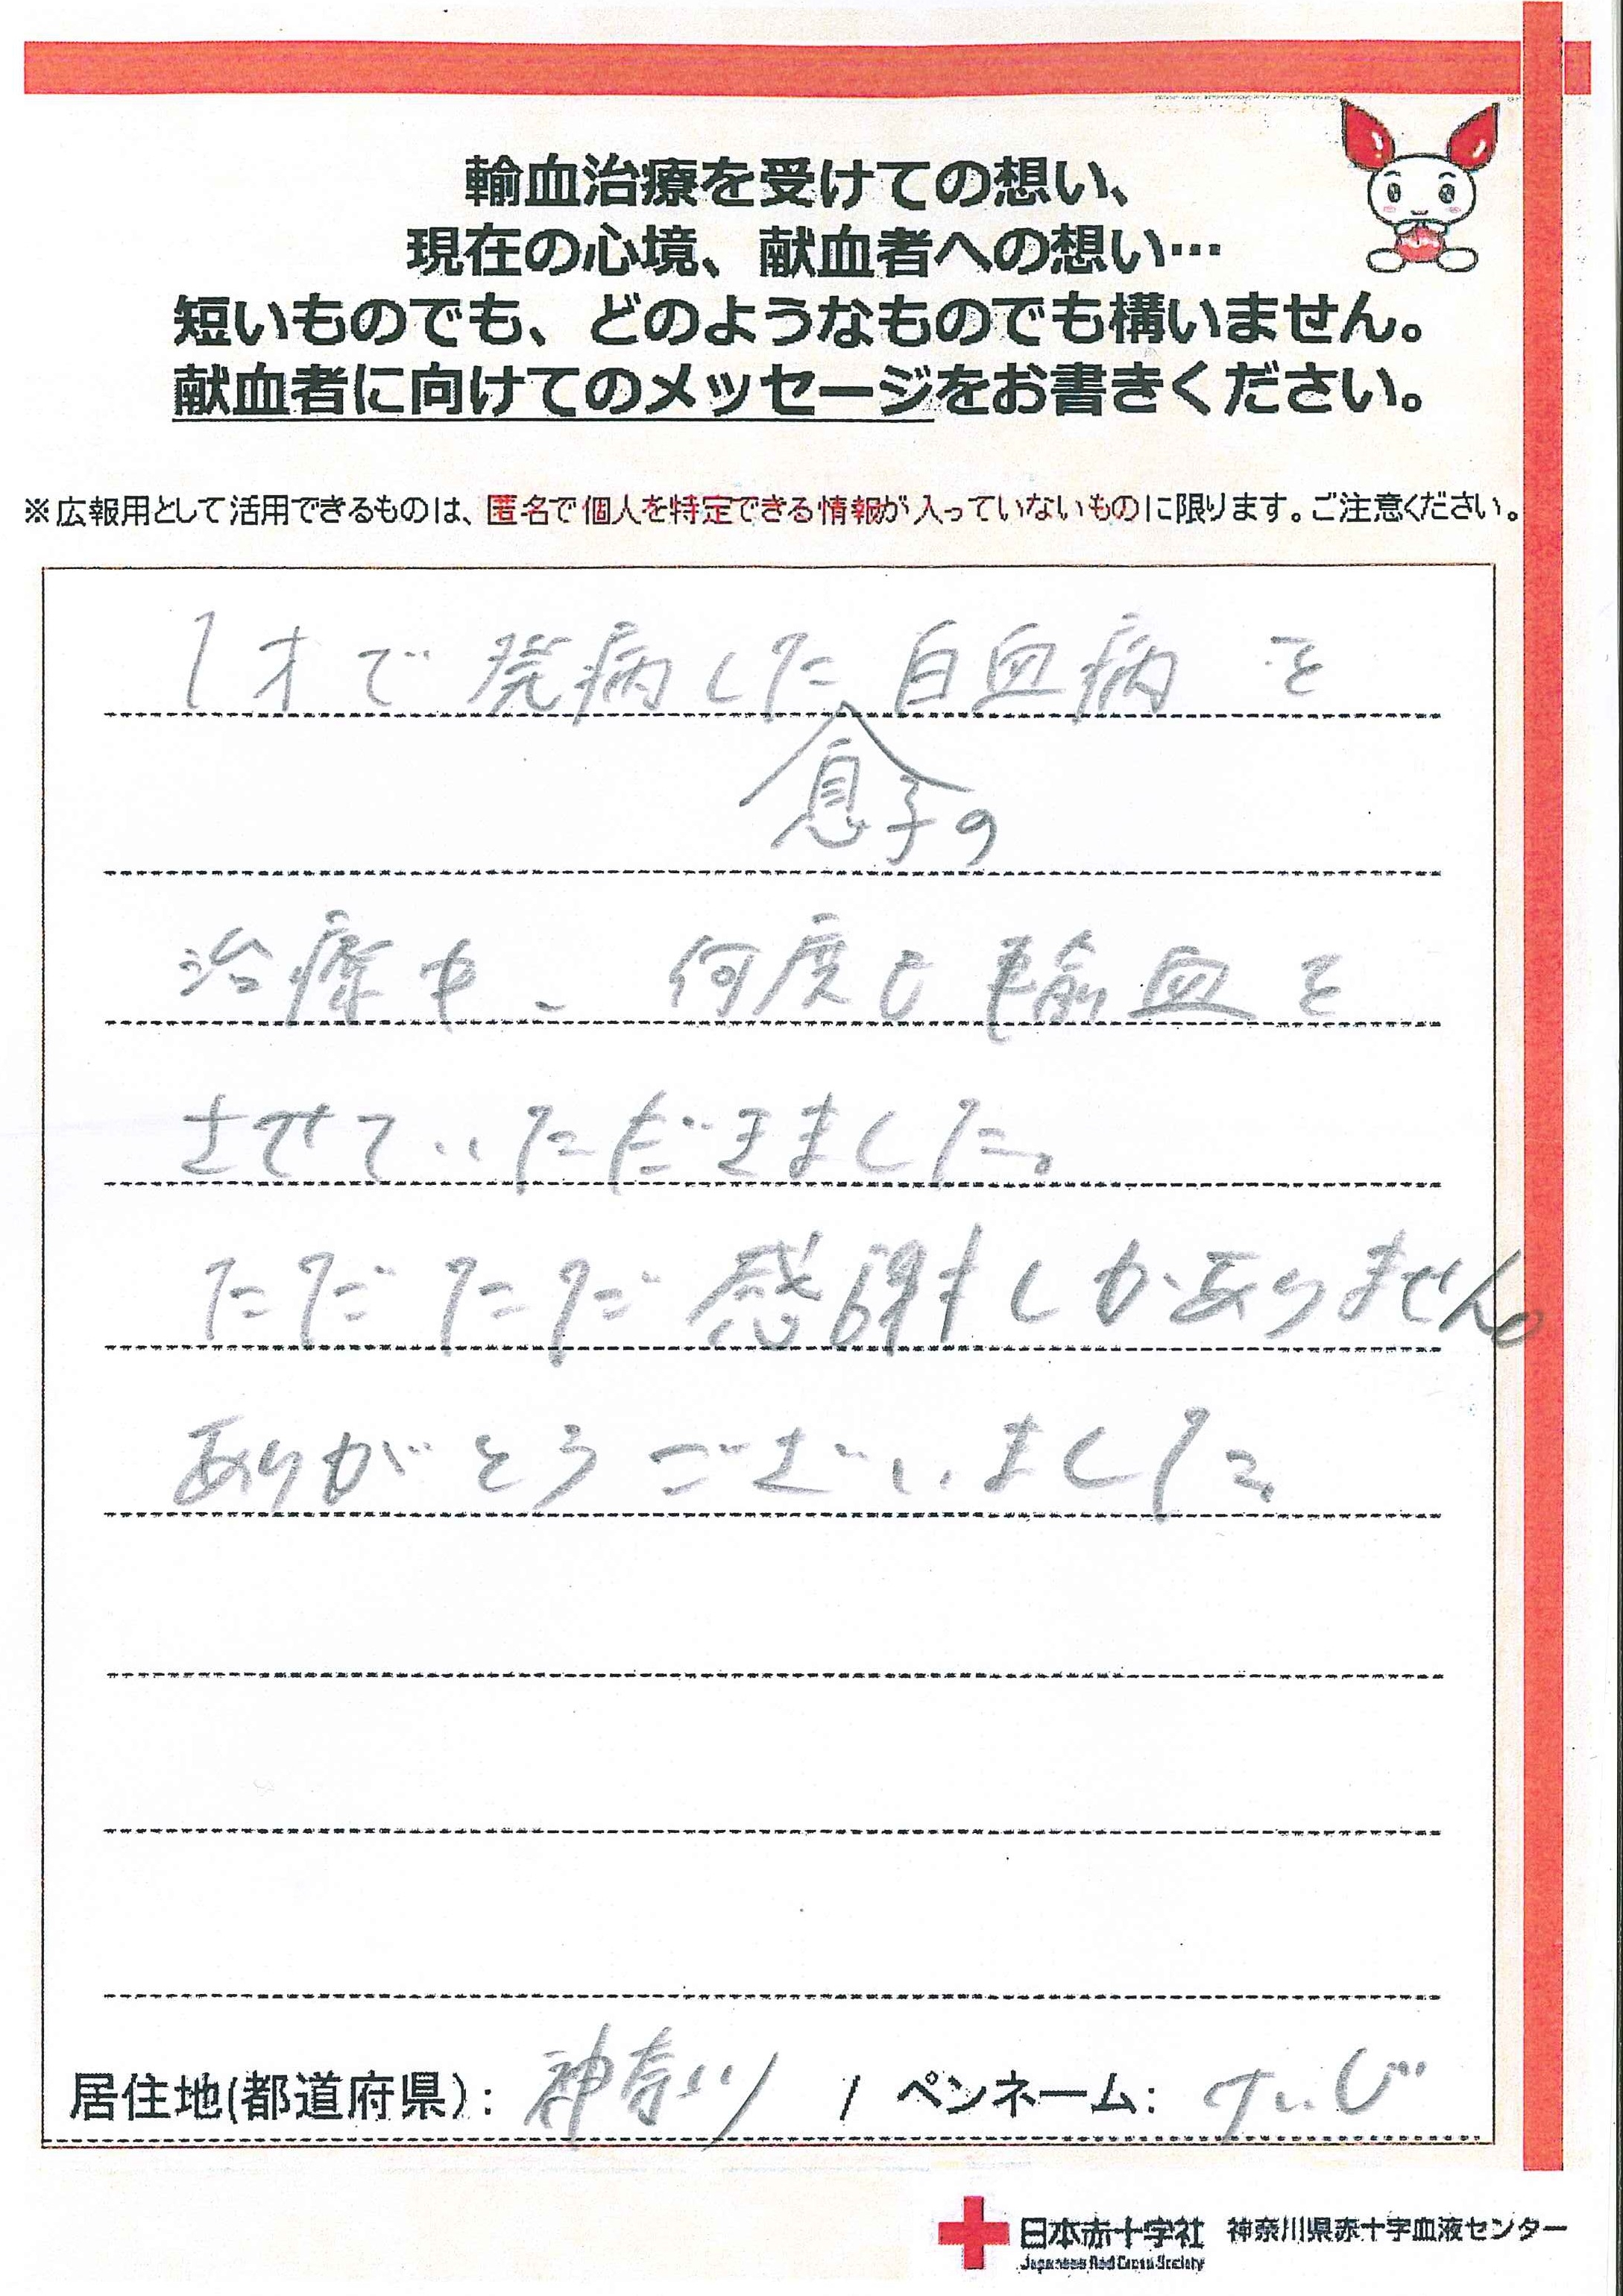 輸血治療を受けての想い、
現在の心境、献血者への想い…
短いものでも、どのようなものでも構いません。
献血者に向けてのメッセージをお書きください。
※広報用として活用できるものは、匿名で個人を特定できる情報が入っていないものに限ります。ご注意ください。
1才で発病した白血病を
息子の
治療中、何度も輸血を
させていただきました。
ただただ感謝しかありません。
ありがとうございました。
居住地(都道府県)： 神奈川 / ペンネーム： けいじ
日本赤十字社 神奈川県赤十字血液センター
Japanese Red Cross Society